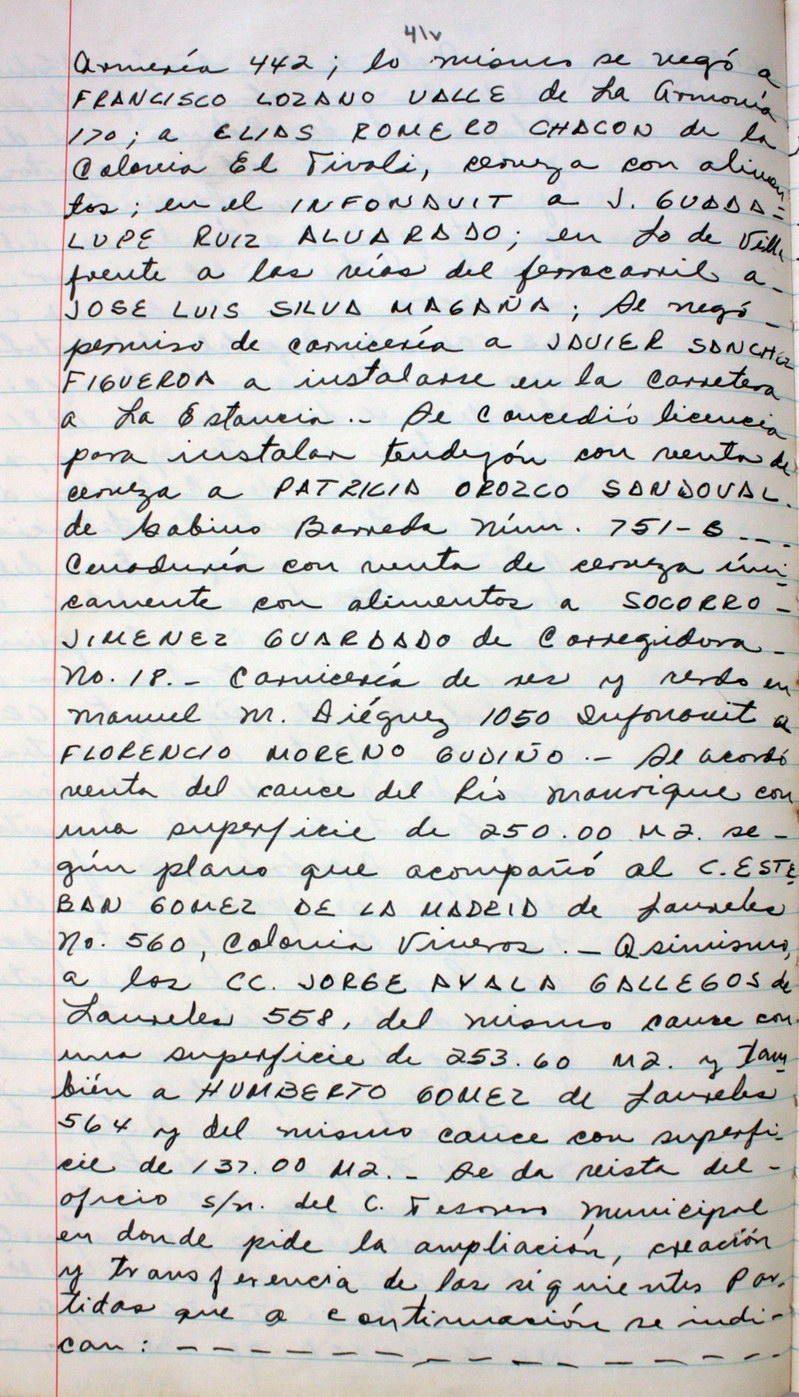 41v
Armería 442; lo mismo se negó a
FRANCISCO LOZANO VALLE de La Armonía
170; a ELIAS ROMERO CHACON de la
Colonia El Tivoli, cerveza con alimen
tos; en el INFONAVIT a J. GUADA-
LUPE RUIZ ALVARADO; en Lo de Villa
frente a las vías del ferrocarril a -
JOSE LUIS SILVA MAGAÑA; Se negó -
permiso de carnicería a JAVIER SANCHEZ
FIGUEROA a instalarse en la Carretera
a La Estancia.- Se Concedió licencia
para instalar tendejón con venta de
cerveza a PATRICIA OROZCO SANDOVAL.
de Gabino Barreda Núm. 751-B - - -
Cenaduría con venta de cerveza úni
camente con alimentos a SOCORRO -
JIMENEZ GUARDADO de Corregidora -
No. 18.- Carnicería de res y cerdo en
Manuel M. Diéguez 1050 Infonavit a
FLORENCIO MORENO GUDIÑO.- Se acordó
venta del cauce del Río Manrique con
una superficie de 250.00 M2. se-
gún plano que acompañó al C. ESTE
BAN GOMEZ DE LA MADRID de Laureles
No. 560, Colonia Viveros.- Asimismo,
a los CC. JORGE AYALA GALLEGOS de
Laureles 558, del mismo cauce con
una superficie de 253.60 M2. y Tam
bién a HUMBERTO GOMEZ de Laureles
564 y del mismo cauce con superfi-
cie de 137.00 M2.- Se da vista del -
oficio s/n. del C. Tesorero Municipal
en donde pide la ampliación, creación
y transferencia de las siguientes Par-
tidas que a continuación se indi-
can: - - - - - - - - - - - - - - -